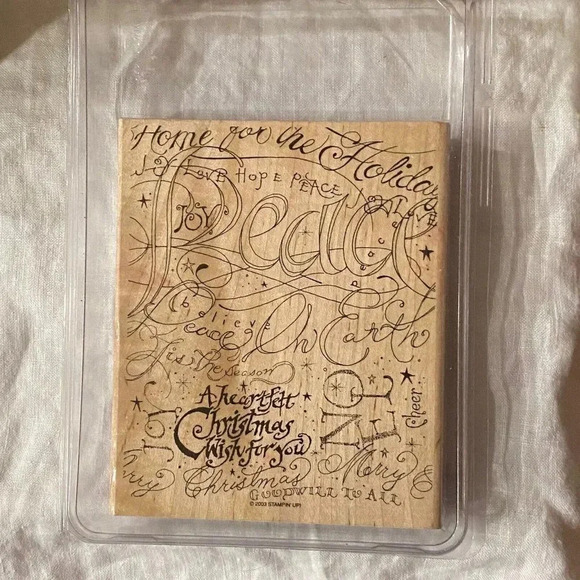 Home for the Holidays
JOY LOVE HOPE PEACE JOY LOVE
JOY
Peace
believe
Peace On Earth
'Tis the Season
A heartfelt
Christmas
Wish for you
JOY
NOEL
cheer
Merry
Christmas
Merry
GOODWILL TO ALL
© 2003 STAMPIN' UP!